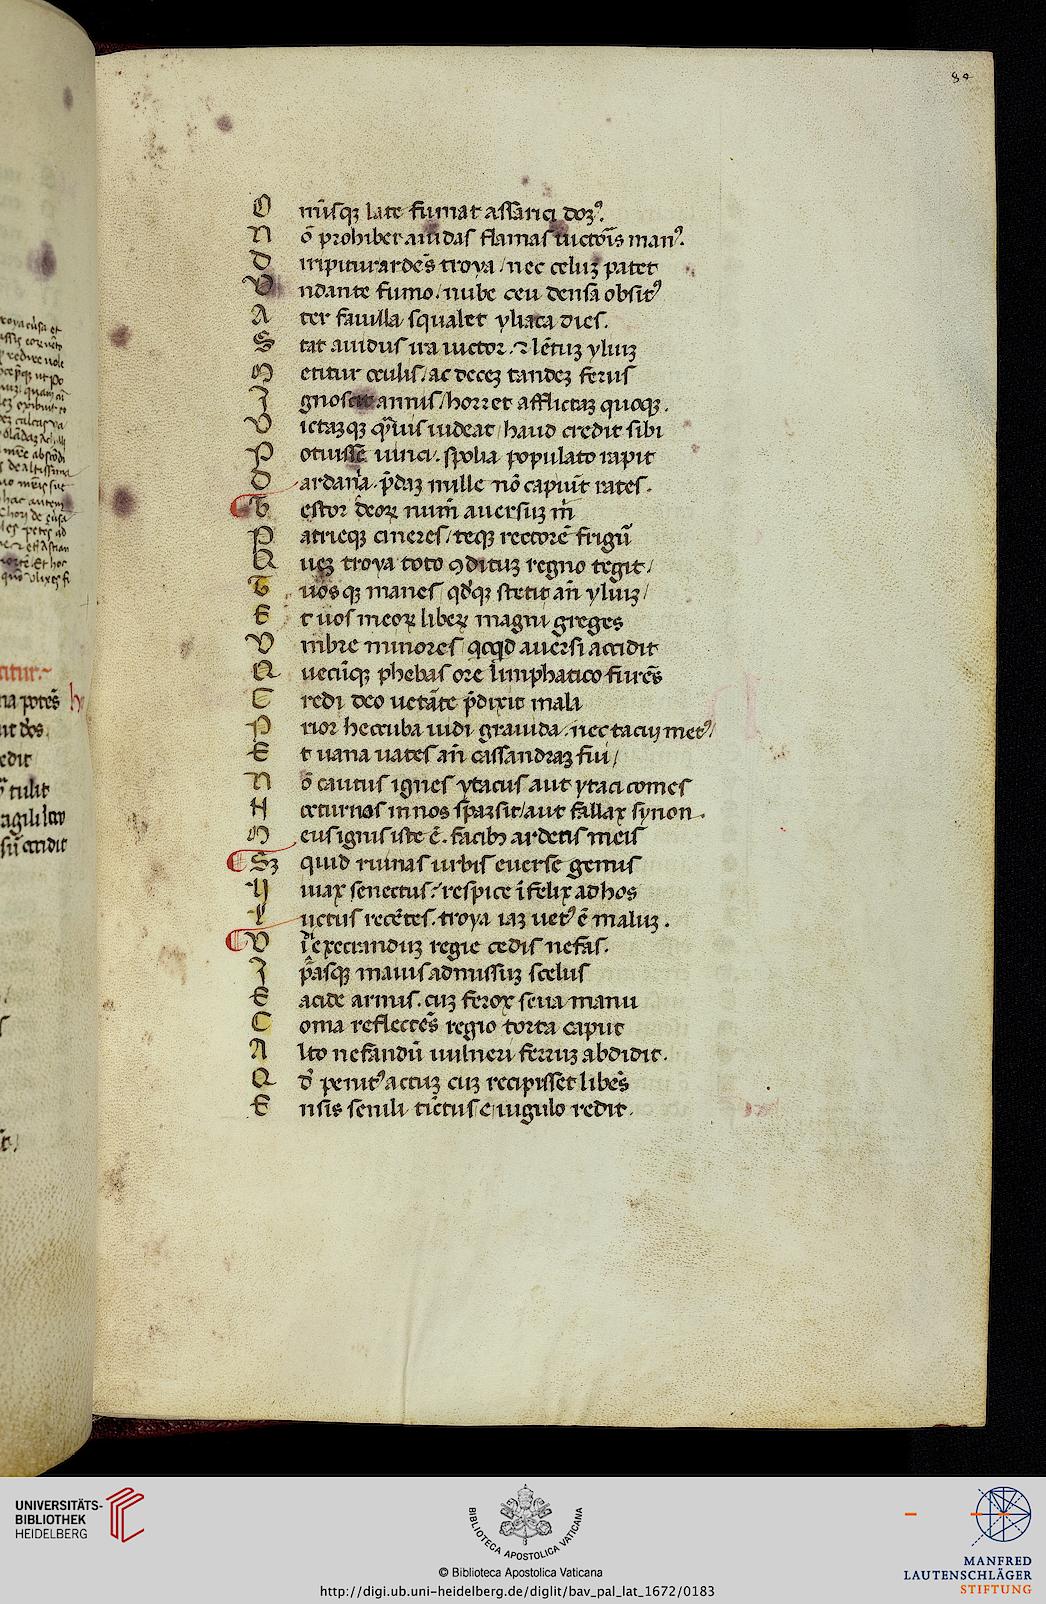 84
O mīsqꝫ late fumat assarici domꝰ.
N ō prohibet auidas flamas uictoīs manꝰ.
D iripitur ardēs troya / nec celuꝫ patet
V ndante fumo. nube ceu densa obsitꝰ
A ter fauilla squalet yliaca dies.
S tat auidus ira uictor. ⁊ lētuꝫ yluiꝫ
M etitur oculis. ac deceꝫ tandeꝫ ferus
I gnoscit annis / horret afflictaꝫ quoqꝫ.
V ictaꝫqꝫ qͣuis uideat / haud credit sibi
P otuisse uinci. spolia populator rapit
D ardania. p̄daꝫ mille nō capiūt rates.
T estor deoꝝ num̄ auersuꝫ m̄
P atrieqꝫ cineres / teqꝫ rectorē frigū
Q ueꝫ troya toto ꝯdituꝫ regno tegit /
T uosqꝫ manes / qͦqꝫ stetit an̄ yliuꝫ /
E t uos meoꝝ liberꝝ magni greges
V mbre minores / qͥcqͥd auersi accidit
Q uecūqꝫ phebas ore limphatico furēs
C redi deo uetāte p̄dixit mala
P rior heccuba uidi grauida. nec tacui metꝰ /
E t uana uates an̄ cassandraꝫ fui /
N ō cautus ignes ytacus aut ytaci comes
N octurnos in nos sparsit / aut fallax synon.
M eus ignis iste ē. facibꝫ ardetis meis
Sꝫ quid ruinas urbis euerse gemis
V iuax senectus? respice īfelix ad hos
L uctus recētes. troya iaꝫ uetꝰ ē maluꝫ.
V idi execranduꝫ regie cedis nefas.
I p̄asqꝫ maius admissuꝫ scelus
E acide armis. cuꝫ ferox seua manu
C oma reflectēs regio torta caput
A lto nefandū uulneri ferruꝫ abdidit.
Q ď penitꝰ actuꝫ cuꝫ recipisset libēs
E nsis senili tīctus e iugulo redit.
UNIVERSITÄTS-
BIBLIOTHEK
HEIDELBERG
BIBLIOTECA APOSTOLICA VATICANA
© Biblioteca Apostolica Vaticana
http://digi.ub.uni-heidelberg.de/diglit/bav_pal_lat_1672/0183
MANFRED
LAUTENSCHLÄGER
STIFTUNG